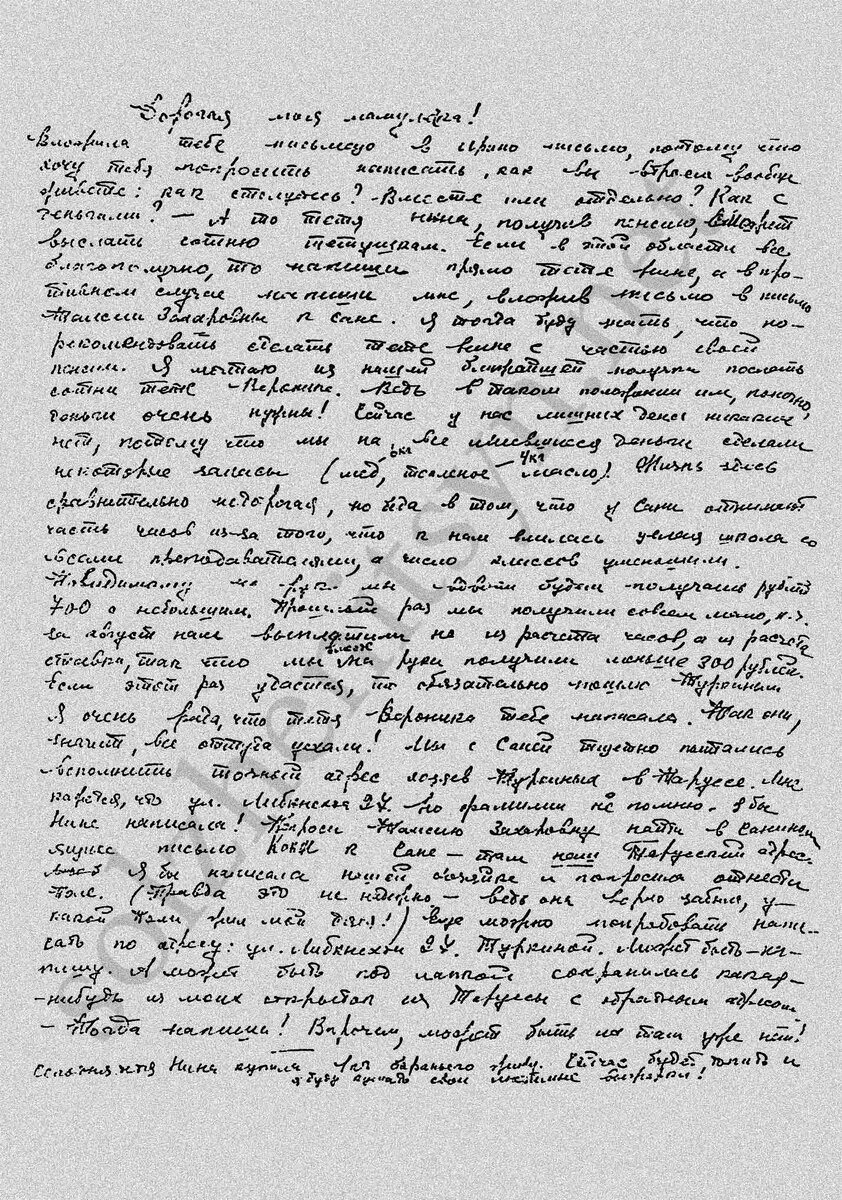 Дорогая моя мамулька!
Вложила тебе письмецо в Ирино письмо, потому что
хочу тебя попросить написать, как вы втроем вообще
живете: как столуетесь? Вместе или отдельно? Как с
деньгами? — А то тетя Нина, получив пенсию, сможет
выслать сотню тетушкам. Если в этой области все
благополучно, то напиши прямо тете Нине, а в про-
тивном случае напиши мне, вложив письмо в письмо
Таисии Захаровны к Сане. Я тогда буду знать, что по-
рекомендовать сделать тете Нине с частью своей
пенсии. Я мечтаю из нашей ближайшей получки послать
сотни тете Веронике. Ведь в таком положении им, конечно,
деньги очень нужны! Сейчас у нас лишних денег никаких
нет, потому что мы на все имевшиеся деньги сделали
некоторые запасы (мед, 6кг топленое 4кг масло). Жизнь здесь
сравнительно недорогая, но беда в том, что у Сани отнимают
часть часов из-за того, что к нам влилась целая школа со
всеми преподавателями, а число классов уменьшили.
Повидимому на руки мы вдвоем будем получать рублей
700 с небольшим. Прошлый раз мы получили совсем мало, т.к.
за август нам выплатили не из расчета часов, а из расчета
ставки, так что мы на руки получили меньше 300 рублей.
Если этот раз удастся, то обязательно пошлю Туркиным
Я очень рада, что тетя Вероника тебе написала. Так они,
значит, все оттуда уехали! Мы с Саней тщетно пытались
вспомнить точный адрес хозяев Туркиных в Тарусе. Мне
кажется, что ул. Либкнехта 27. Но фамилии не помню. Я бы
Нине написала! Попроси Таисию Захаровну найти в Санином
ящике письмо к Сане — там наш Тарусский адрес.
Я бы написала нашей хозяйке и попросила отнести
Поле. (Правда это не надежно — ведь она верно забыла, у
какой Поли жил мой дядя!) Еще можно попробовать напи-
сать по адресу: ул. Либкнехта 27. Туркиной. Может быть — на-
пишу. А может быть под лапкой сохранилась какая-
-нибудь из моих открыток из Тарусы с обратным адресом
— Тогда напиши! Впрочем, может быть их там уже нет!
Сегодня тетя Нина купила бараньего жиру. Сейчас будет топить и
я буду кушать свои любимые